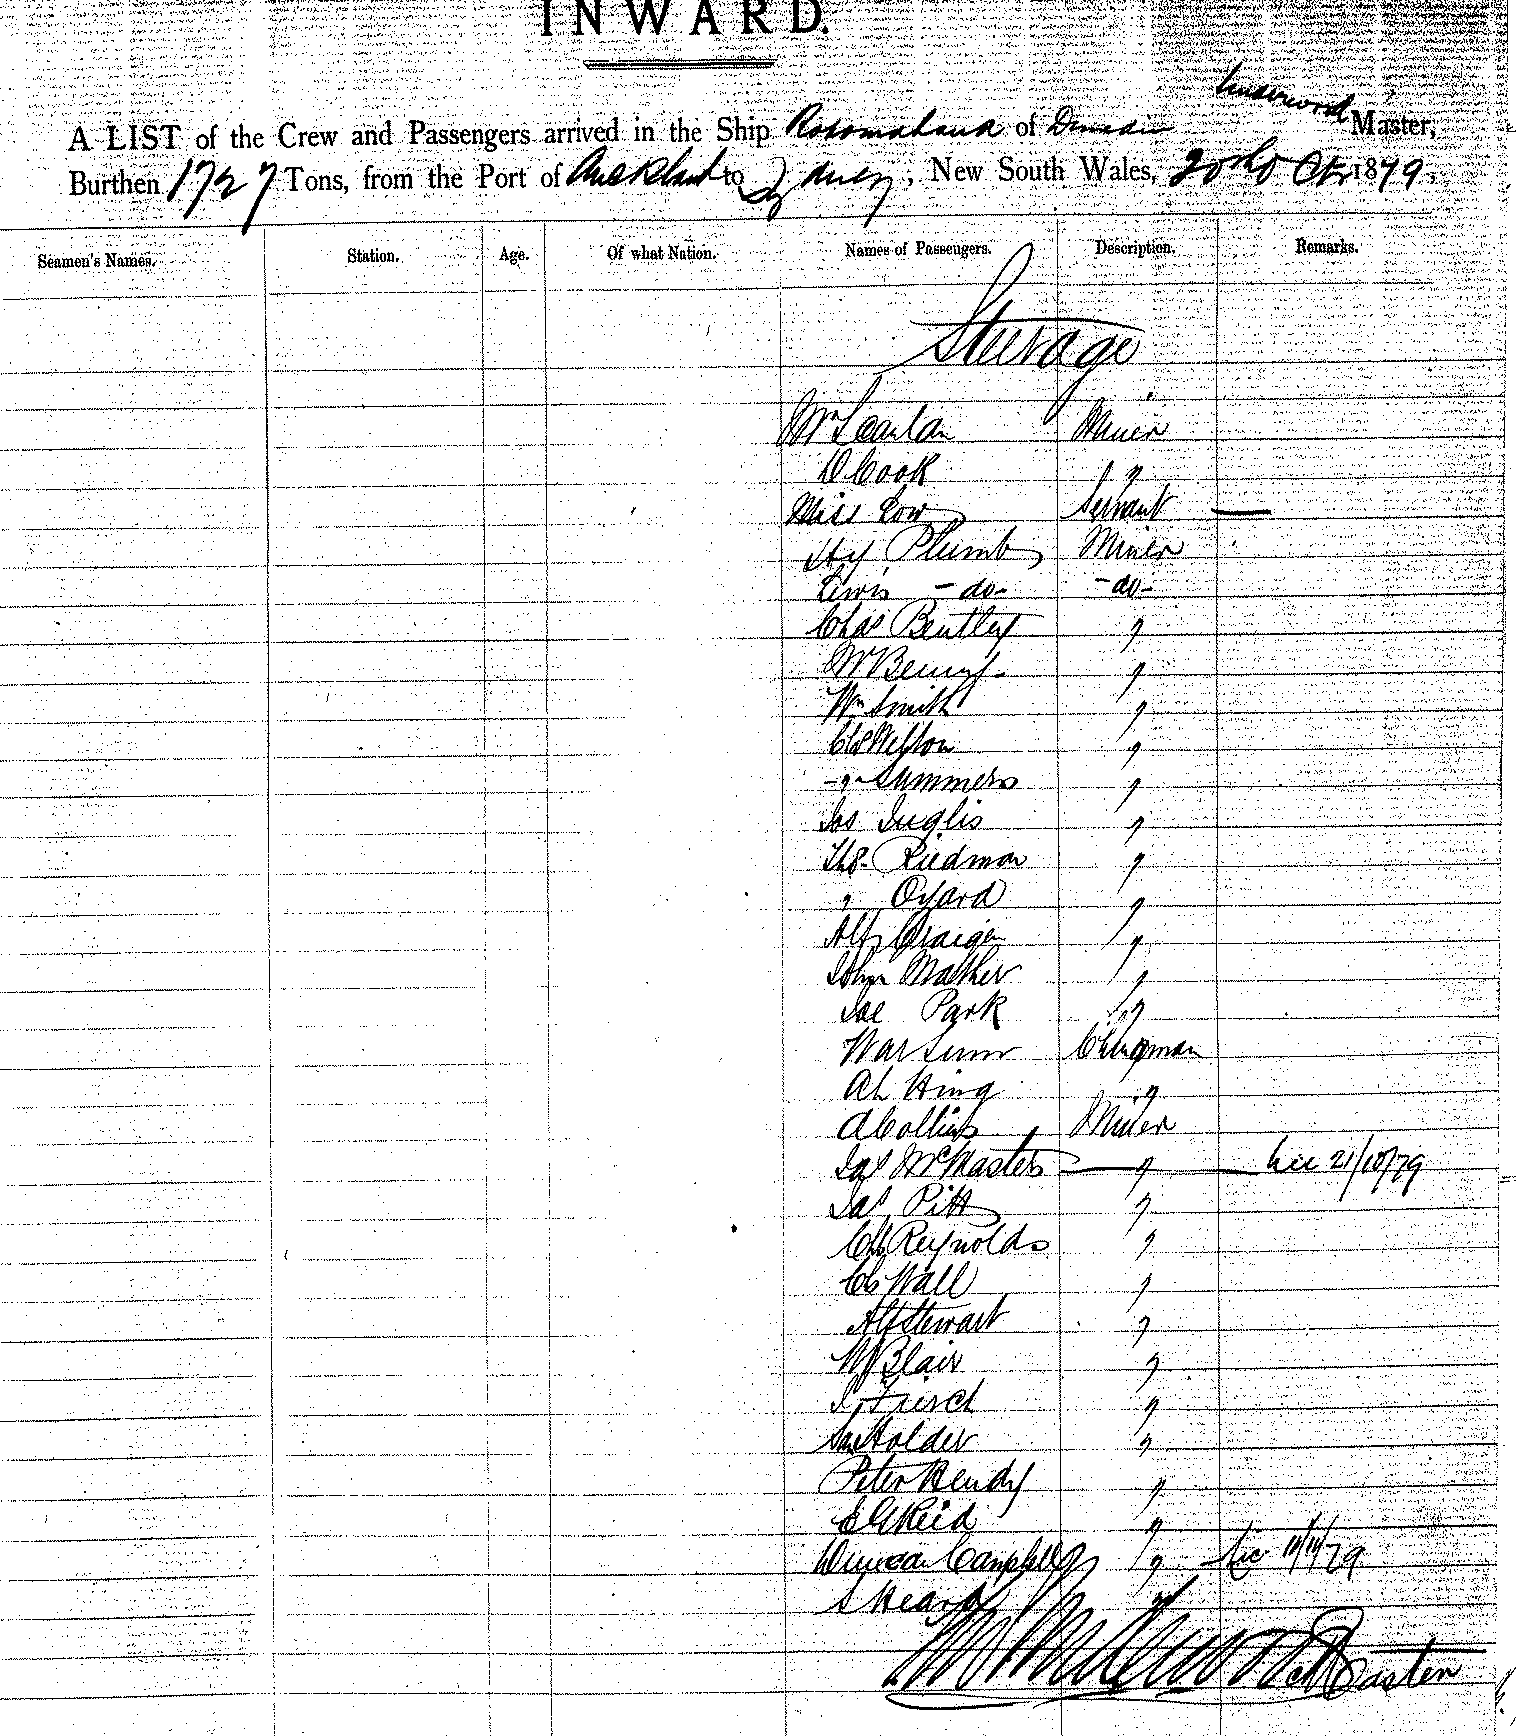 INWARD.
Underwood
A LIST of the Crew and Passengers arrived in the Ship Rotomahana of Dunedin Master,
Burthen 1727 Tons, from the Port of Auckland to Sydney, New South Wales, 20th Oct 1879.
Seamen's Names. Station. Age. Of what Nation. Names of Passengers. Description. Remarks.
Steerage
Wm Scanlan Miner
D Cook "
Miss Low Servant —
Hy Plumb Miner
Lewis -do- -do-
Chas Bentley "
W Benny "
Wm Smith "
Chs "
-"- Summers "
Jos Inglis "
Ths. Riedman "
" Oxford "
Alf Craigen "
John Mather "
Joe Park "
War Lum Chinaman
Ah Hing "
A Collins Miner
Jas McMasters — " — 21/10/79
Jas Pitt "
Chs Reynolds "
Chs Wall "
Alf Stewart "
W Blair "
French "
Holder "
Peter Hendy "
E G Reid "
Duncan Campbell " 11/11/79
S Heard "
Underwood Master